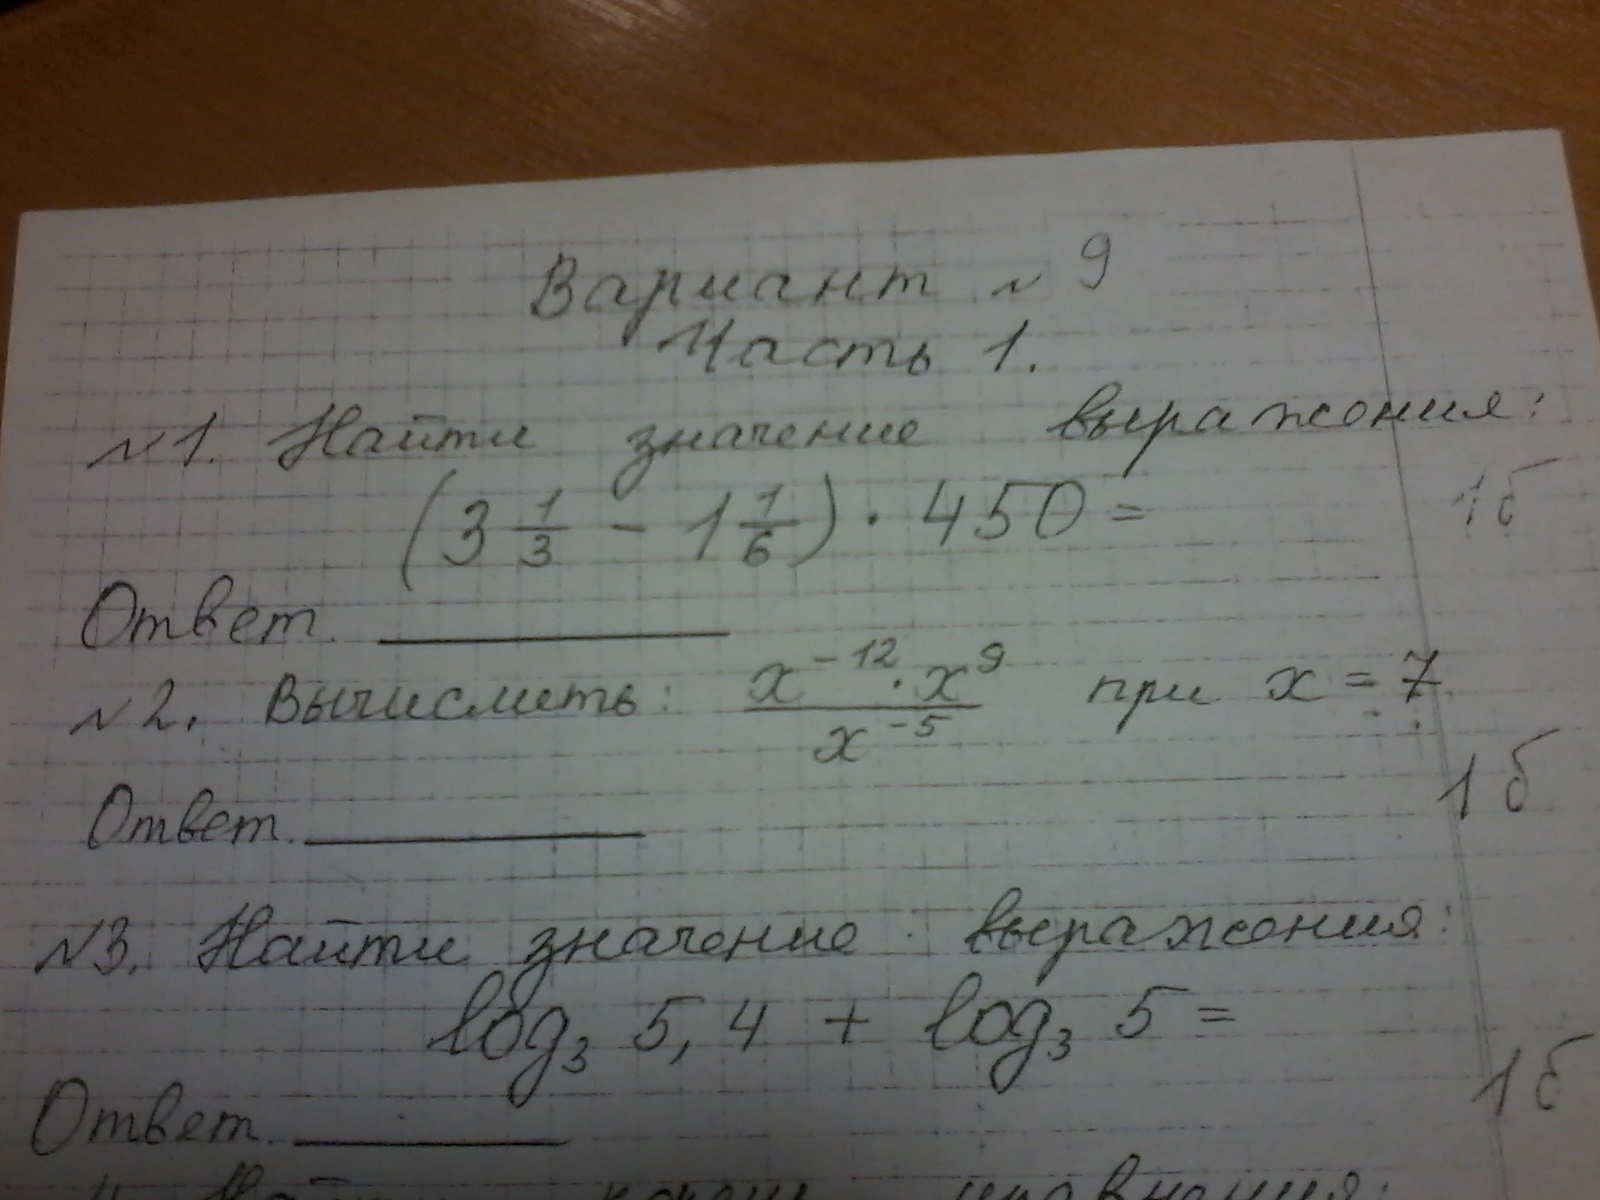 Вариант № 9
Часть 1.
№1. Найти значение выражения:
(3 1/3 - 1 1/6) · 450 =
1б
Ответ.
№2. Вычислить: x^-12 · x^9 / x^-5 при x = 7
1б
Ответ.
№3. Найти значение выражения:
log₃ 5,4 + log₃ 5 =
1б
Ответ.